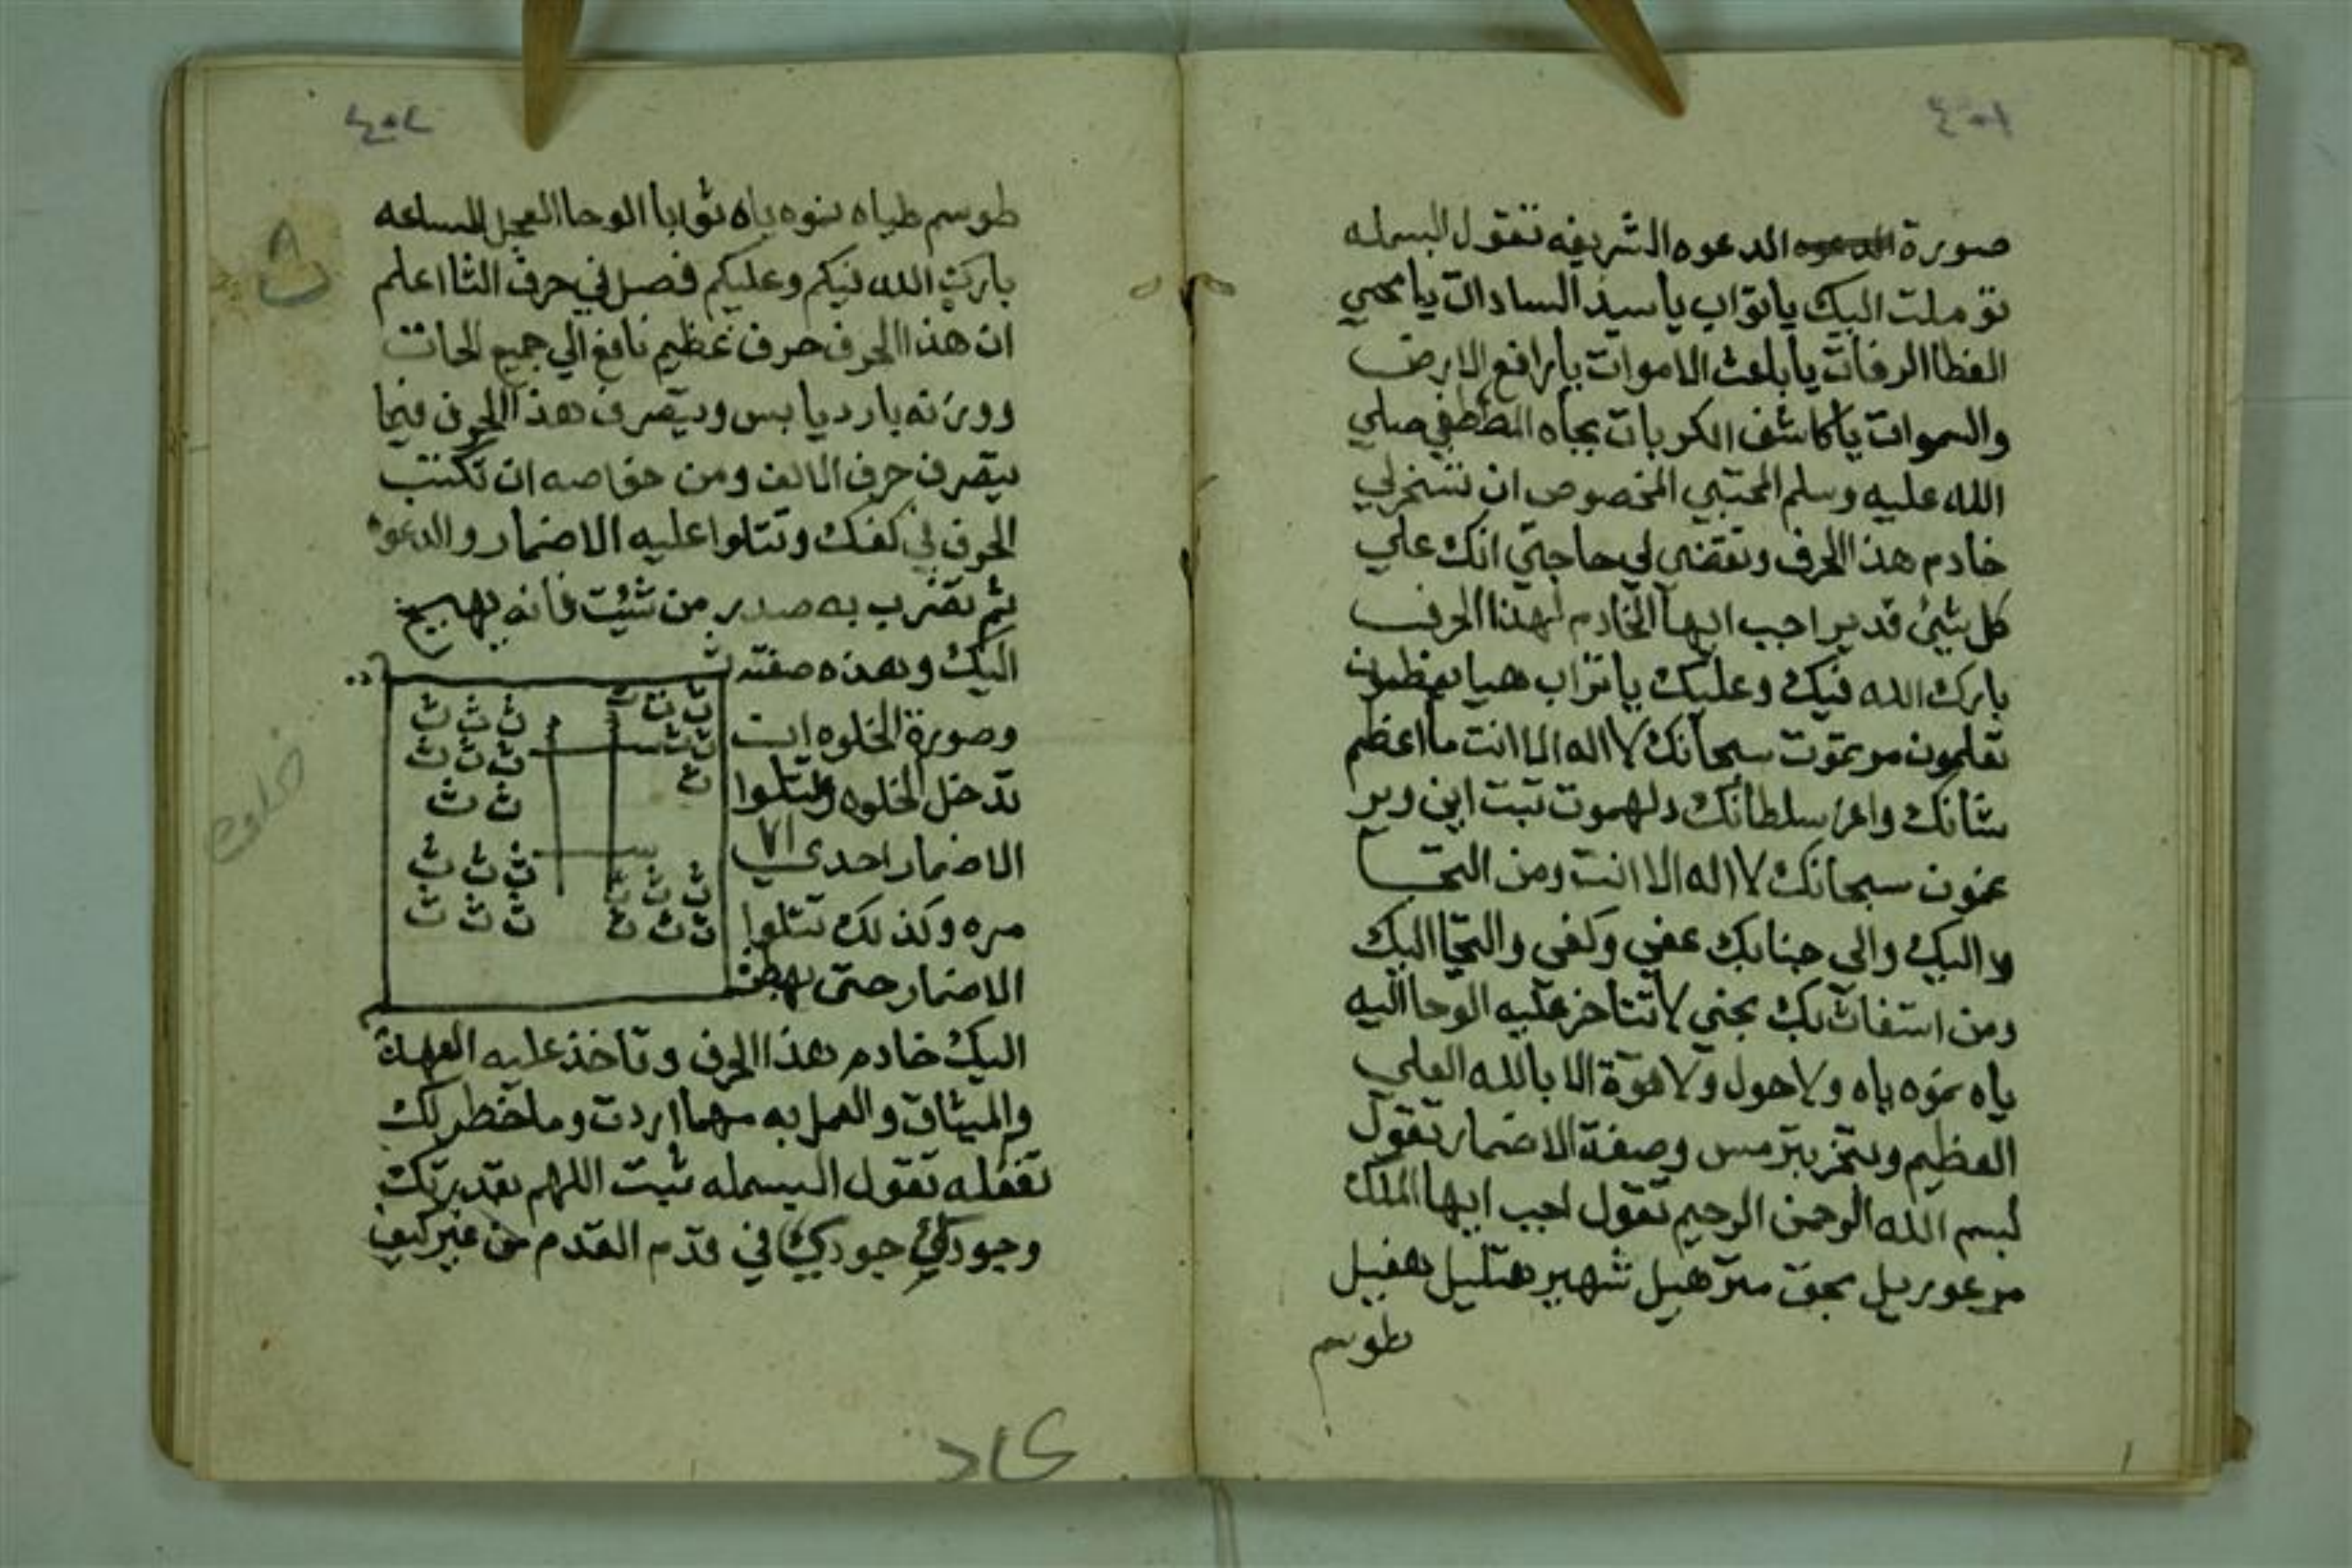 صورة الدعوه الشريفه تقول البسمله
توسلت اليك ياتواب ياسيد السادات يا محيي
العظا الرفات يا باعث الاموات يا رافع الارض
والسموات يا كاشف الكربات بجاه المصطفي صلي
الله عليه وسلم المجتبي المخصوص ان تسخر لي
خادم هذا الحرف وتقضي لي حاجتي انك علي
كل شيئ قدير اجب ايها الخادم لهذا الحرف
بارك الله فيك وعليك يا هيا
سبحانك لا اله الا انت ما اعظم
شانك واعز سلطانك دلهموت
سبحانك لا اله الا انت ومن التجا
اليك والى جنابك عفي وكفي والتجا اليك
ومن استغاث بك نجني لا تتاخر عليه الوحا اليه
ياه نموه ياه ولا حول ولا قوة الا بالله العلي
العظيم وصفة الاضمار تقول
بسم الله الرحمن الرحيم تقول اجب ايها الملك
بحق شهير هتليل
طوسم
٤٠٢
طوسم طياه ينوه ياه توابا الوحا العجل الساعه
بارك الله فيكم وعليكم فصل في حرف الثا اعلم
ان هذا الحرف حرف عظيم نافع الي جميع الحات
ووزنه بارد يابس ويتصرف هذا الحرف فيما
يتصرف حرف الالف ومن خواصه ان تكتب
الحرف في كفك وتتلوا عليه الاضمار والدعوه
ثم تضرب به صدر من شئت فانه يهيج
اليك وهذه صفته
وصورة الخلوه ان
تدخل الخلوه وتتلوا
الاضمار احدي ٧١
مره وكذلك تتلوا
الاضمار حتى يهبط
اليك خادم هذا الحرف وتاخذ عليه العهد
والميثاق والعمل به مهما اردت وما خطر لك
تفعله تقول البسمله ثبت اللهم بقدرتك
وجودك جودك في قدم القدم من غير كيف
ث ث ث
ث ث ث
ث ث
ث ث ث
ث ث ث
خلوه
٨